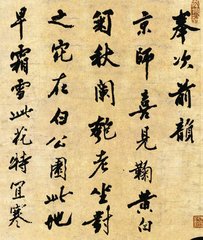 奉次前韻
京師喜見鞠黄白
菊秋闌老坐對
之宛在白公圃此地
早霜雪此花特宜寒